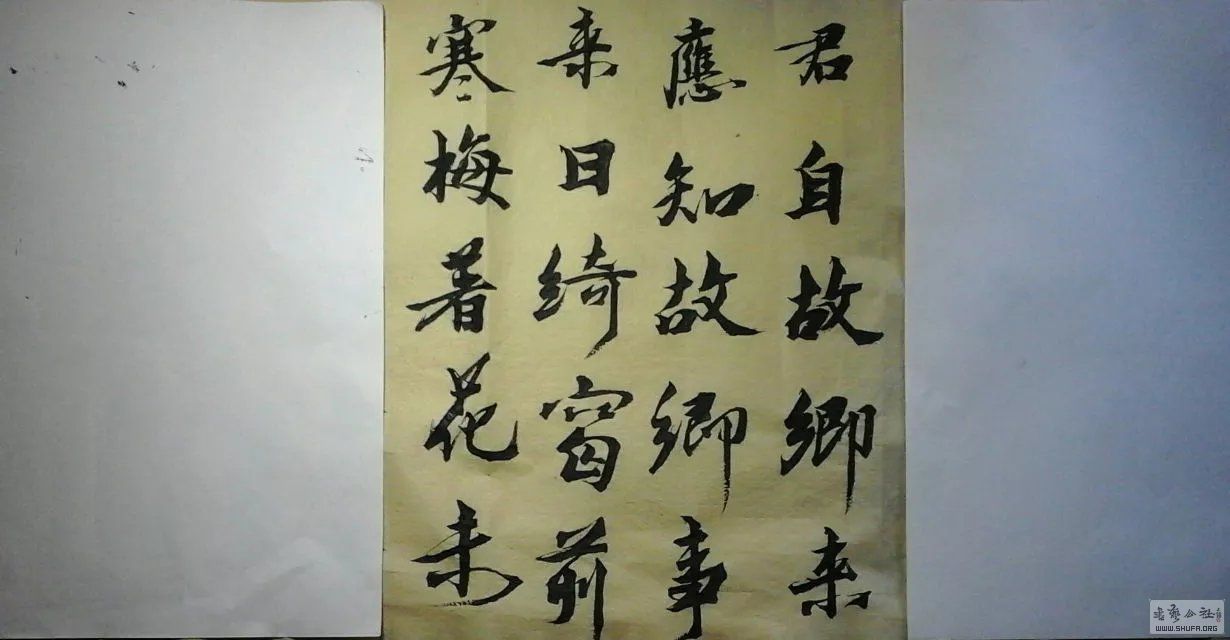 君自故鄉来
應知故鄉事
来日綺窗前
寒梅著花未
书艺公社
WWW.SHUFA.ORG